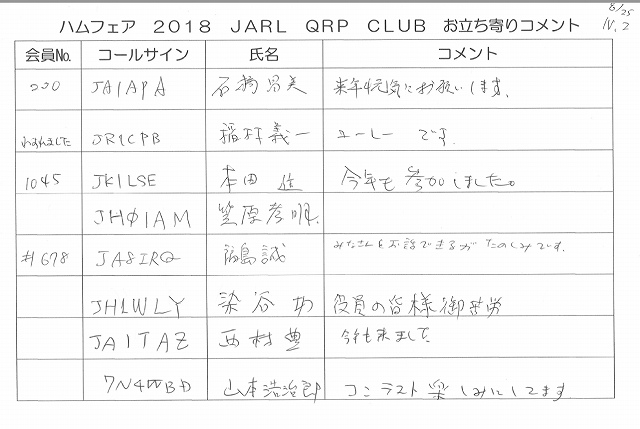 ハムフェア 2018 JARL QRP CLUB お立ち寄りコメント
8/25
N.2
会員No. コールサイン 氏名 コメント
220 JA1APA 石橋昌美 来年も元気にお願いします。
わすれました JR1CPB 稲村義一 ユーレー です。
1045 JK1LSE 本田 今年も参加しました。
JHØIAM 笠原孝明
#678 JA8IRQ 福島誠 みなさんとお話できるが たのしみです。
JH1WLY 染谷 功 役員の皆様御苦労
JA1TAZ 西村 豊 今年も来ました
7N4WBD 山本浩治郎 コンテスト楽しみにしてます